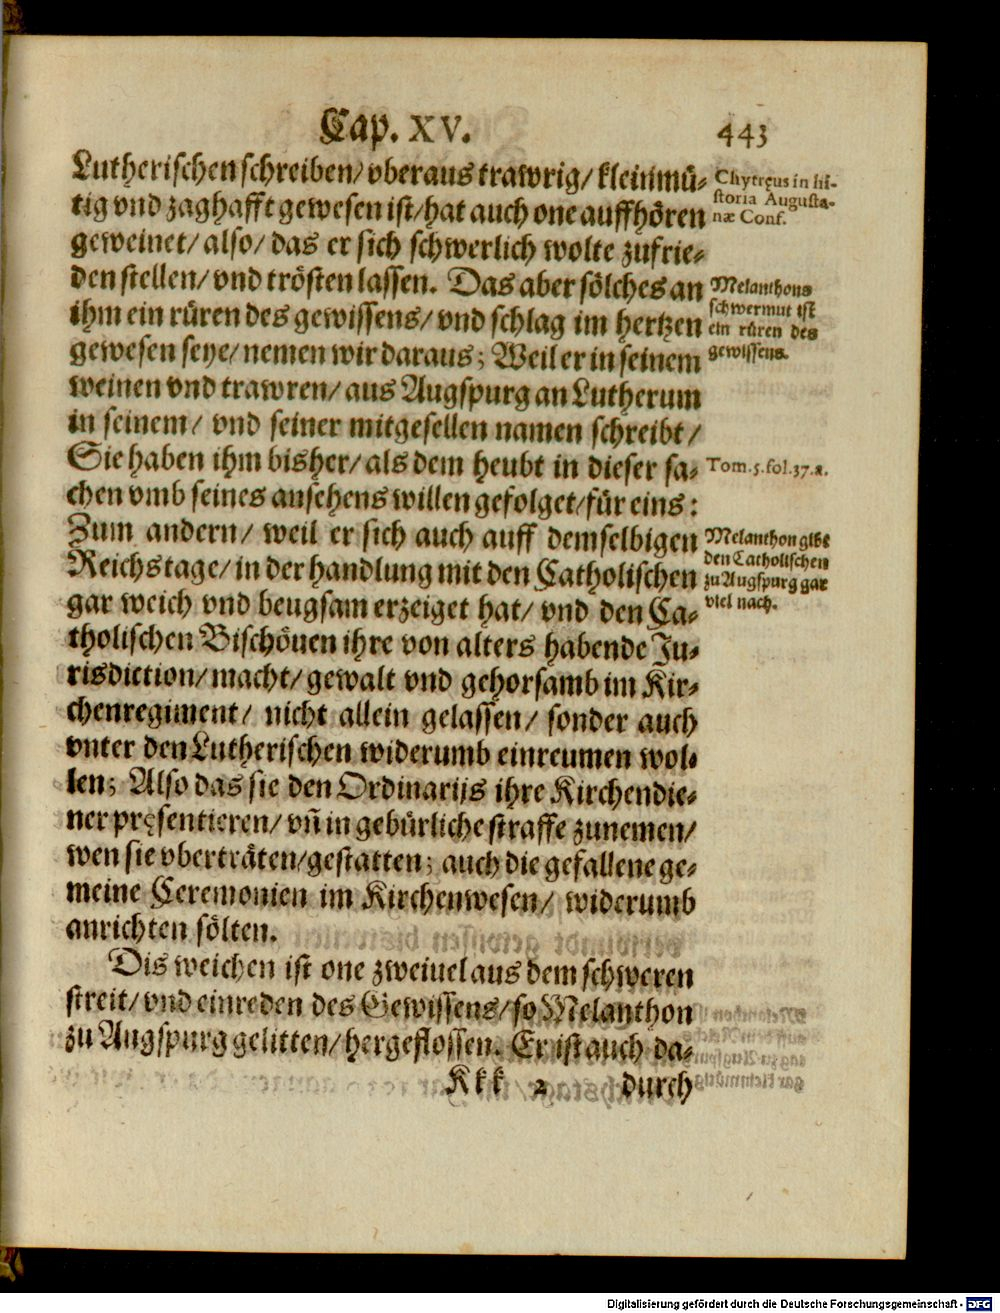 Cap. XV. 443
Lutherischen schreiben/ vberaus trawrig/ kleinmü-
tig vnd zaghafft gewesen ist/ hat auch one auffhören
geweinet/ also/ das er sich schwerlich wolte zufrie-
den stellen/ vnd trösten lassen. Das aber sölches an
ihm ein rüren des gewissens/ vnd schlag im hertzen
gewesen seye/ nemen wir daraus; Weil er in seinem
weinen vnd trawren/ aus Augspurg an Lutherum
in seinem/ vnd seiner mitgesellen namen schreibt/
Sie haben ihm bisher/ als dem heubt in dieser sa-
chen vmb seines ansehens willen gefolget/ für eins:
Zum andern/ weil er sich auch auff demselbigen
Reichstage/ in der handlung mit den Catholischen
gar weich vnd beugsam erzeiget hat/ vnd den Ca-
tholischen Bischöuen ihre von alters habende Ju-
risdiction/ macht/ gewalt vnd gehorsamb im Kir-
chenregiment/ nicht allein gelassen/ sonder auch
vnter den Lutherischen widerumb einreumen wol-
len; Also das sie den Ordinarijs ihre Kirchendie-
ner pręsentieren/ vñ in gebürliche straffe zunemen/
wen sie vberträten/ gestatten; auch die gefallene ge-
meine Ceremonien im Kirchenwesen/ widerumb
anrichten sölten.
Dis weichen ist one zweiuel aus dem schweren
streit/ vnd einreden des Gewissens/ so Melanthon
zu Augspurg gelitten/ hergeflossen. Er ist auch da-
Kkk 2 durch
Chytręus in hi-
storia Augusta-
næ Conf.
Melanthons
schwermut ist
ein rüren des
gewissens.
Tom. 5. fol. 37. a.
Melanthon gibt
den Catholischen
zu Augspurg gar
viel nach.
Digitalisierung gefördert durch die Deutsche Forschungsgemeinschaft - DFG